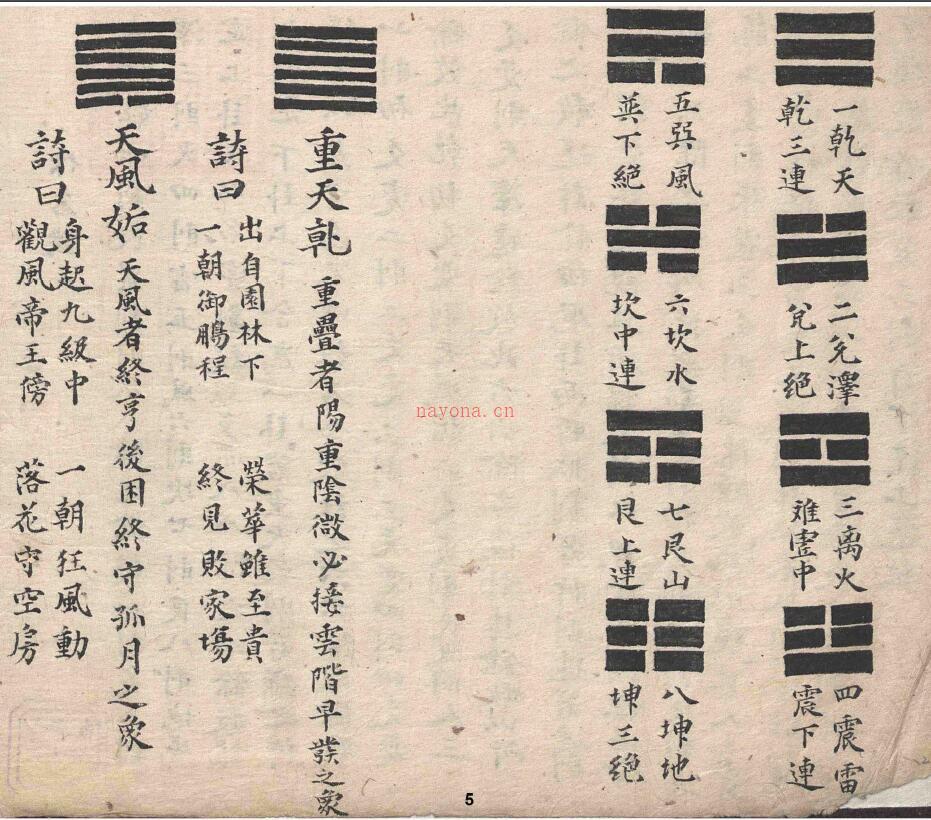 一乾天
乾三連
二兌澤
兌上绝
三离火
难虛中
四震雷
震下連
五巽風
巽下絕
六坎水
坎中連
七艮山
艮上連
八坤地
坤三绝
重天乹 重疊者陽重陰微必接雲階早發之象
詩曰
出自園林下 榮華雖至貴
一朝御鵬程 終見敗家塲
天風姤 天風者終亨後困終守孤月之象
詩曰
身起九級中 一朝狂風動
觀風帝王傍 落花守空房
nayona.cn
5